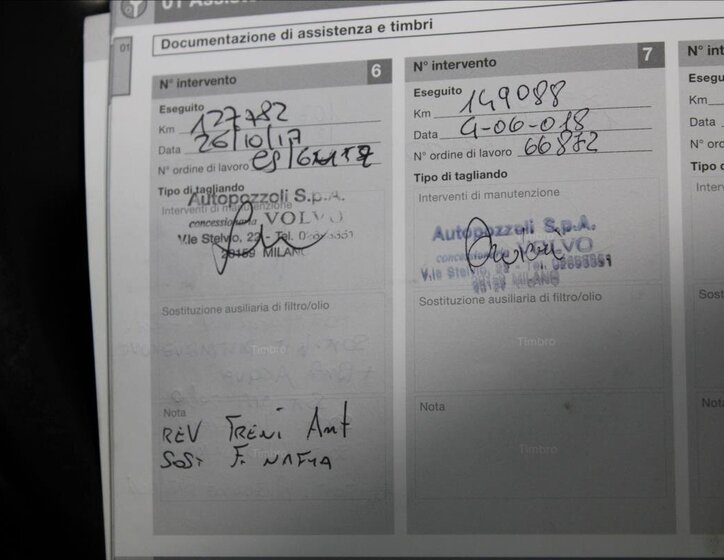 01 Assist
01
Documentazione di assistenza e timbri
N° intervento 6
Eseguito
Km 127782
Data 26/10/17
N° ordine di lavoro
Tipo di tagliando
Interventi di manutenzione
Autopozzoli S.p.A.
concessionaria VOLVO
V.le Stelvio, 22 - Tel.
20159 MILANO
Sostituzione ausiliaria di filtro/olio
Timbro
Nota
REV FRENI ANT
SOST F. NAFTA
Timbro
N° intervento 7
Eseguito
Km 149088
Data 4-06-018
N° ordine di lavoro 66872
Tipo di tagliando
Interventi di manutenzione
Autopozzoli S.p.A.
concessionaria VOLVO
V.le Stelvio, Tel.
20159 MILANO
Sostituzione ausiliaria di filtro/olio
Timbro
Nota
Timbro
N° int
Esegu
Km
Data
N° ord
Tipo d
Interv
Sost
Nota